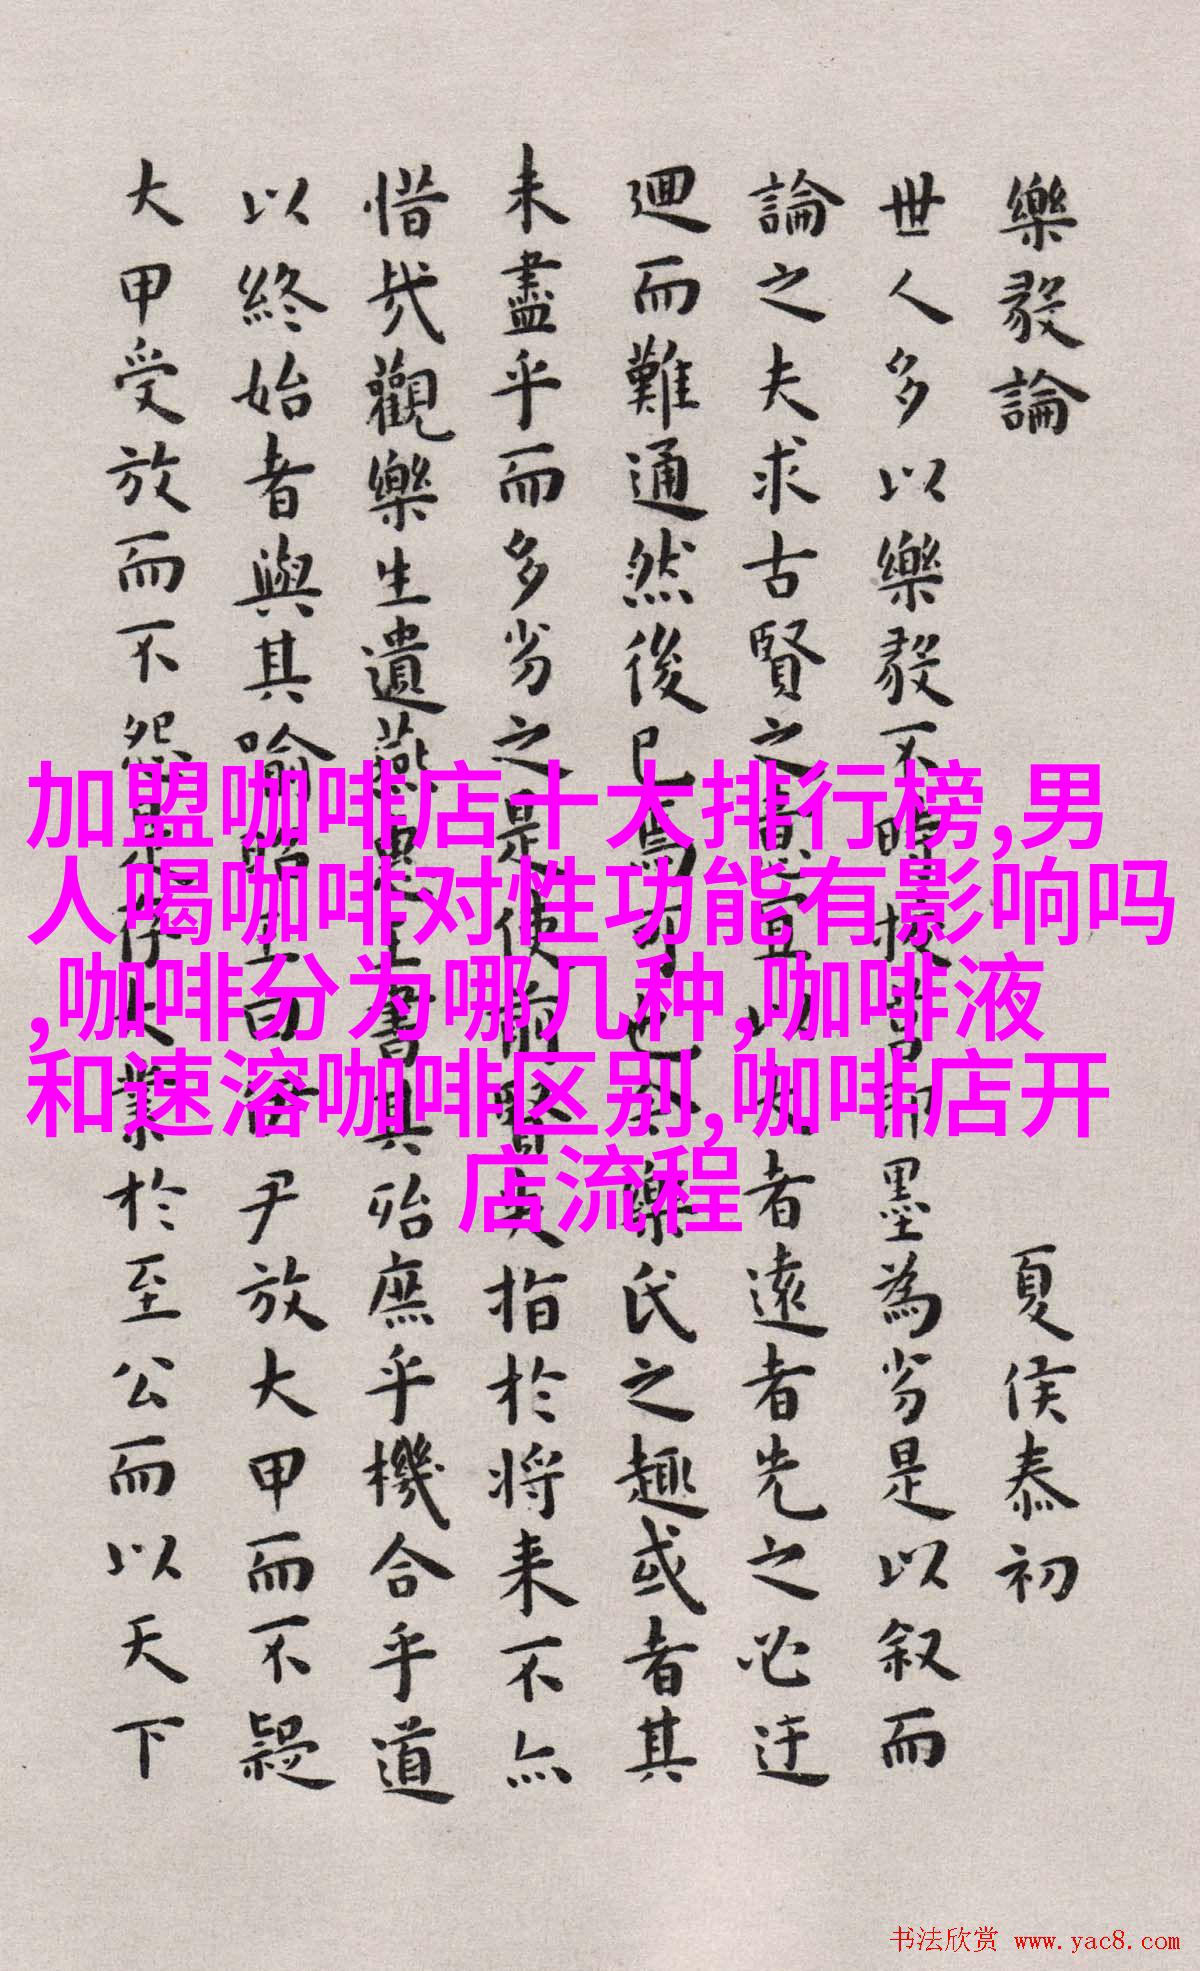 樂毅論 夏侯泰初
世人多以樂毅不時拔莒即墨為劣是以叙而
論之夫求古賢之意宜以大者遠者先之必迂
迴而難通然後已焉可也今樂氏之趣或者其
未盡乎而多劣之是使前賢失指於將来不亦
惜哉觀樂生遺燕惠王書其殆庶乎機合乎道
以終始者與其喻昭王曰伊尹放大甲而不疑
大甲受放而不怨是存大業於至公而以天下
加盟咖啡店十大排行榜,男
人喝咖啡对性功能有影响吗
,咖啡分为哪几种,咖啡液
和速溶咖啡区别,咖啡店开
店流程
书法欣赏 www.yac8.com